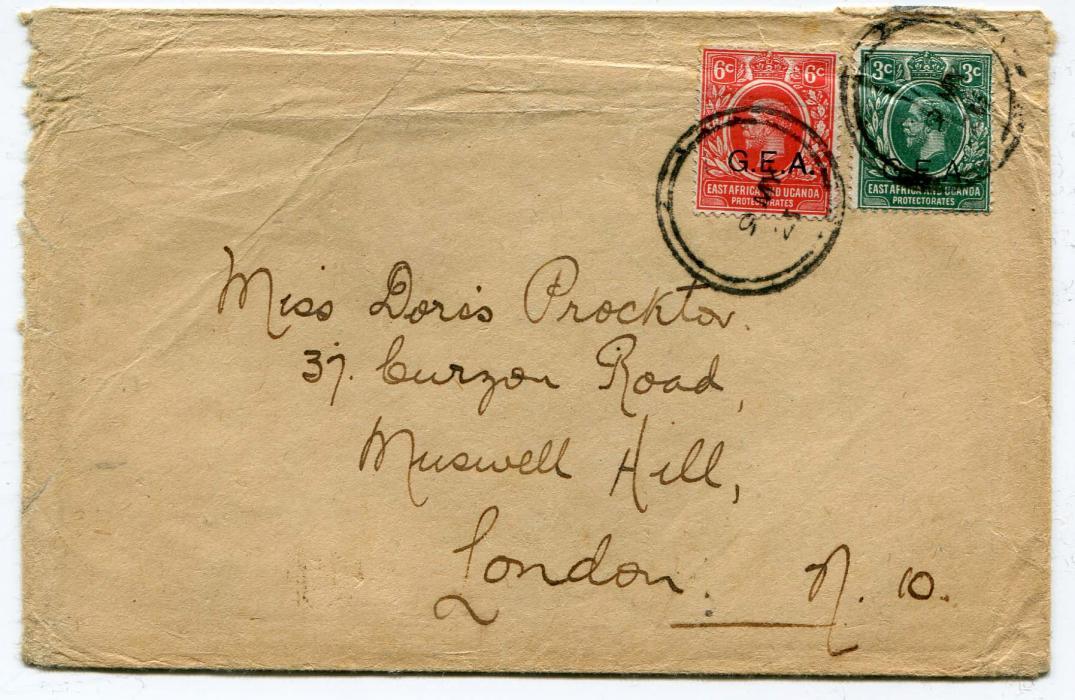 6c 6c
G.E.A.
EAST AFRICA AND UGANDA
PROTECTORATES
3c 3c
G.E.A.
EAST AFRICA AND UGANDA
PROTECTORATES
Miss Doris Procktor.
37. Curzon Road,
Muswell Hill,
London. N. 10.